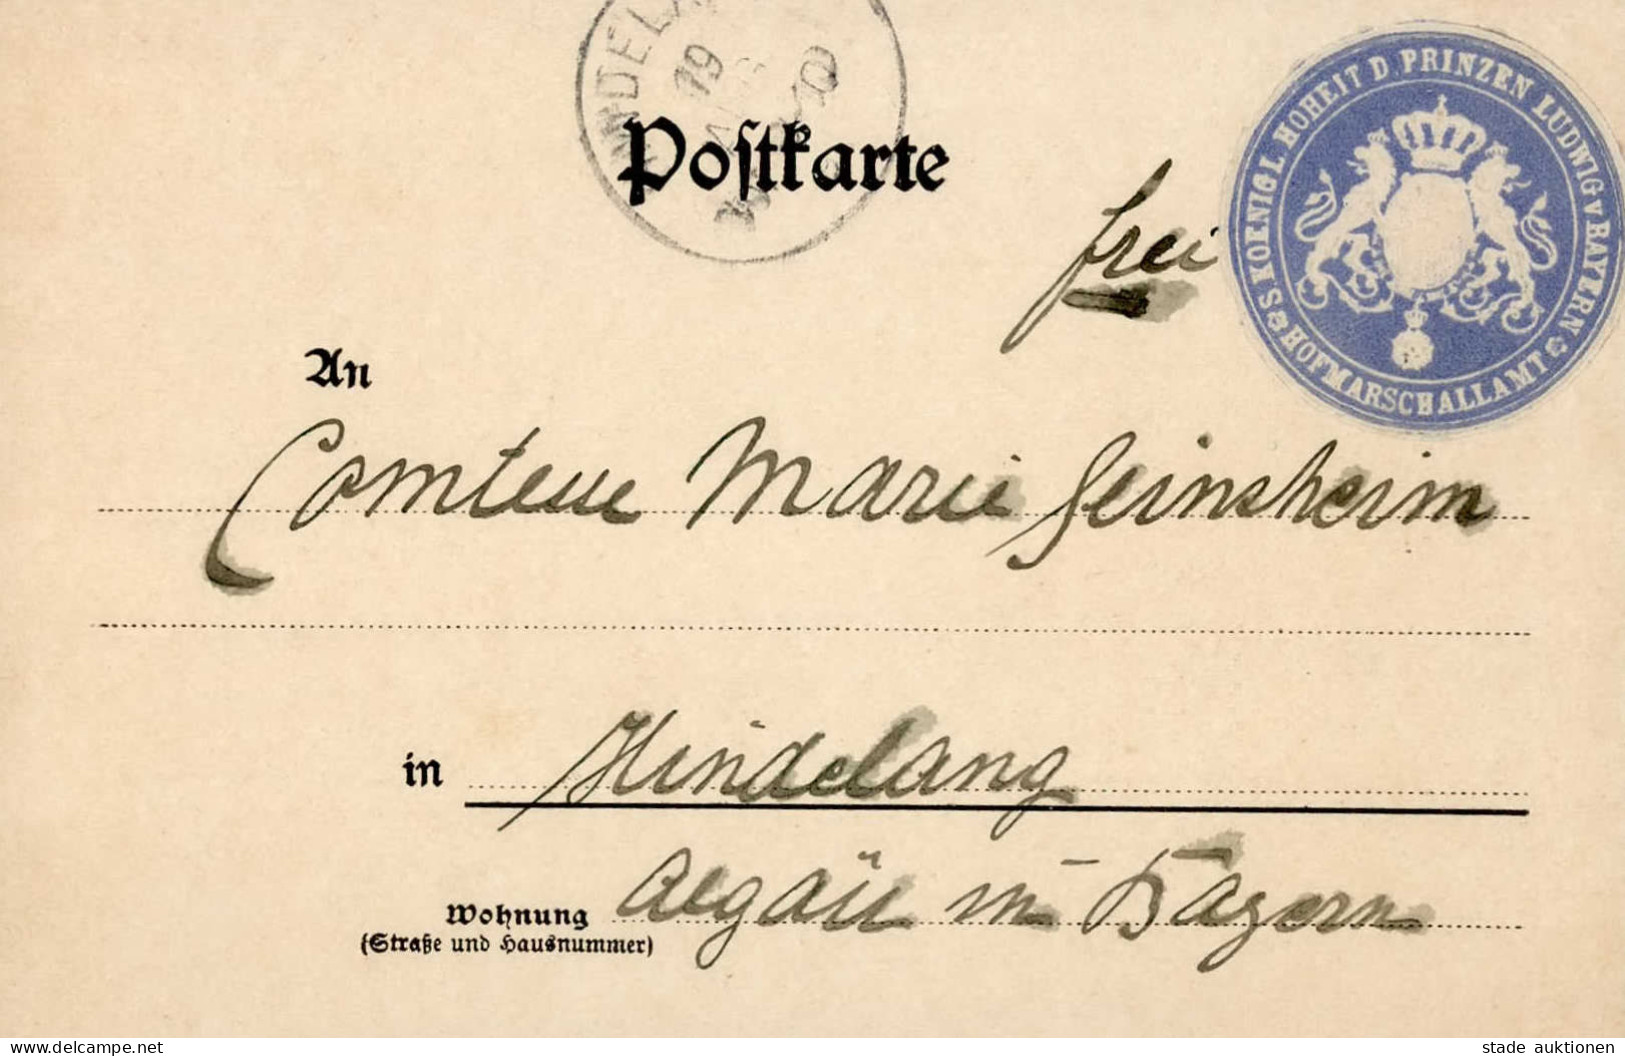 Postkarte
frei
S. KOENIGL. HOHEIT D. PRINZEN LUDWIG V. BAYERN
HOFMARSCHALLAMT
An
Comtesse Marie Seinsheim
in Hindelang
Wohnung Aegäu in Bayern
(Straße und Hausnummer)
www.delcampe.net
stade auktionen